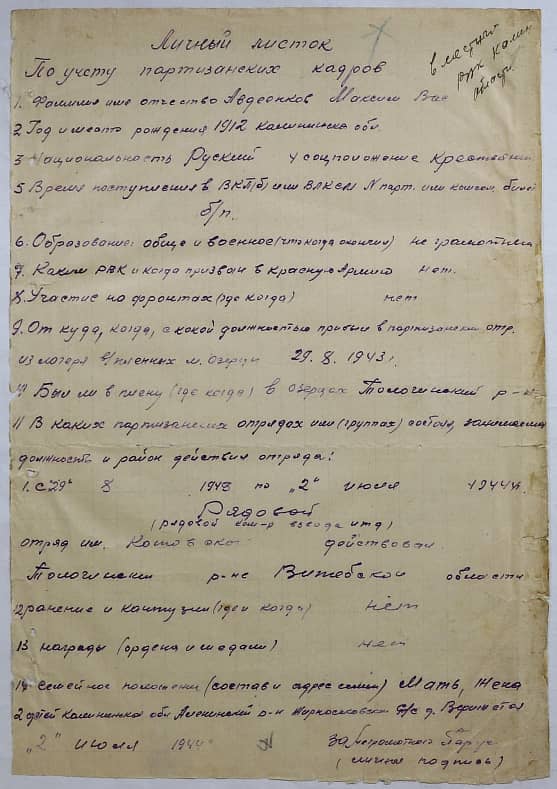 Личный листок
По учету партизанских кадров
в местный
рвк Калин
области
1. Фамилия име отчество Авдеенков Максим Вас
2 Год и место рождения 1912 Калининска обл.
3 Национальность Руский 4 соцположение Крестьянин
5 Время поступления в ВКП(б) или ВЛКСМ N парт. или комсом. билет
б/п.
6. Образование: обще и военное (что когда окончил) не грамотный
7. Каким РВК и когда призван в Красную Армию нет.
8. Участие на фронтах (где когда) нет
9. От куда, когда, с какой должностью прибыл в партизанский отр.
из лагеря в/пленных м. Озерцы 29. 8. 1943 г.
10 Был ли в плену (где когда) в Озерцах Толочинский р-н
11 В каких партизанских отрядах или (группах) состоял, занимаемая
должность и район действия отряда:
1. с "29" 8 1943 по "2" июля 1944 г.
Рядовой
(рядовой ком-р взвода итд)
отряд им. Котовского действовал
Толочинском р-не Витебской области
12 ранение и контузии (где и когда) нет
13 награды (ордена и медали) нет
14 семейное положение (состав и адрес семьи) Мать, Жена
2 детей Калининска обл р-н с/с д.
"2" июля 1944
за неграмотного
(личная подпись)